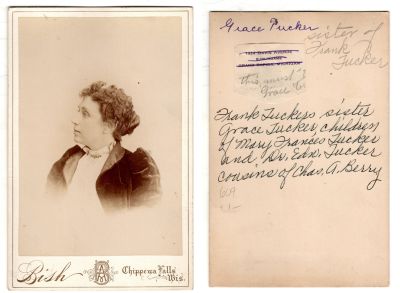 Bish
Chippewa Falls
Wis.
Grace Tucker
sister of
Frank
Tucker
this must be
Frank Tuckers sister
Grace Tucker, children
of Mary Frances Tucker
and Dr. Edw. Tucker
cousins of Chas. A. Berry